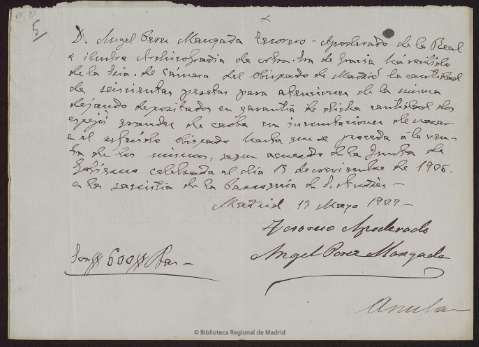 5
D. Angel Perez Mangada Tesorero-Apoderado de la Real
e ilustre Archicofradia de
de la Sria. de Cámara del Obispado de Madrid la cantidad
de seiscientas pesetas para atenciones de la misma
dejando depositados en garantia de dicha cantidad dos
espejos grandes de caoba con incrustaciones de nacar
el obispado hasta que se proceda a la ven-
ta de los mismos, segun acuerdo de la Junta de
Gobierno celebrada el dia 13 de noviembre de 1906
a la sacristia de la Parroquia de S. Andres-
Madrid 13 Mayo 1907-
Tesorero Apoderado
Son pts 600 pts Ptas-
Angel Perez Mangada
Anula
© Biblioteca Regional de Madrid